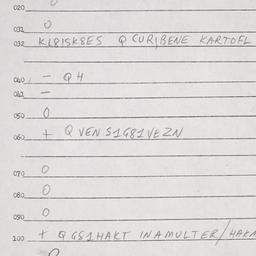 020
031 0
032 KL8ISK8ES Q CUR,BENE KARTOFL
040 - Q H
041 -
050 0
060 + Q VEN S1G81VEZN
070 0
080 0
090 0
100 + Q GS1HAKT INAMULTER/HAKA